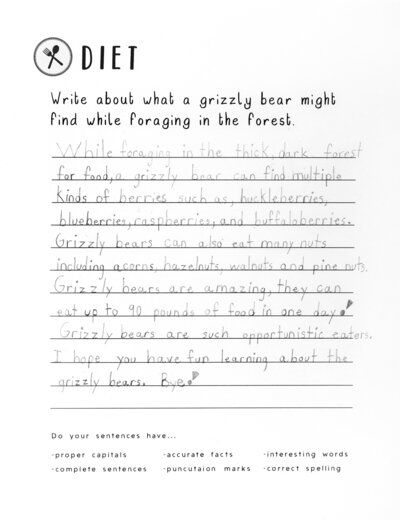 DIET
Write about what a grizzly bear might
find while foraging in the forest.
While foraging in the thick, dark forest
for food, a grizzly bear can find multiple
Kinds of berries such as, huckleberries,
blueberries, raspberries, and buffaloberries.
Grizzly bears can also eat many nuts
including acorns, hazelnuts, walnuts and pine nuts.
Grizzly bears are amazing, they can
eat up to 90 pounds of food in one day!
Grizzly bears are such opportunistic eaters.
I hope you have fun learning about the
grizzly bears. Bye!
Do your sentences have...
·proper capitals ·accurate facts ·interesting words
·complete sentences ·puncutaion marks ·correct spelling